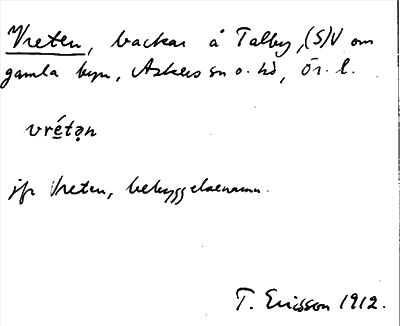 Vreten, backar å Talby, (S)V om
gamla byn, Askers sn o. hd, Ör. l.
vrétạn
jfr Vreten, bebyggelsenamn.
T. Ericsson 1912.